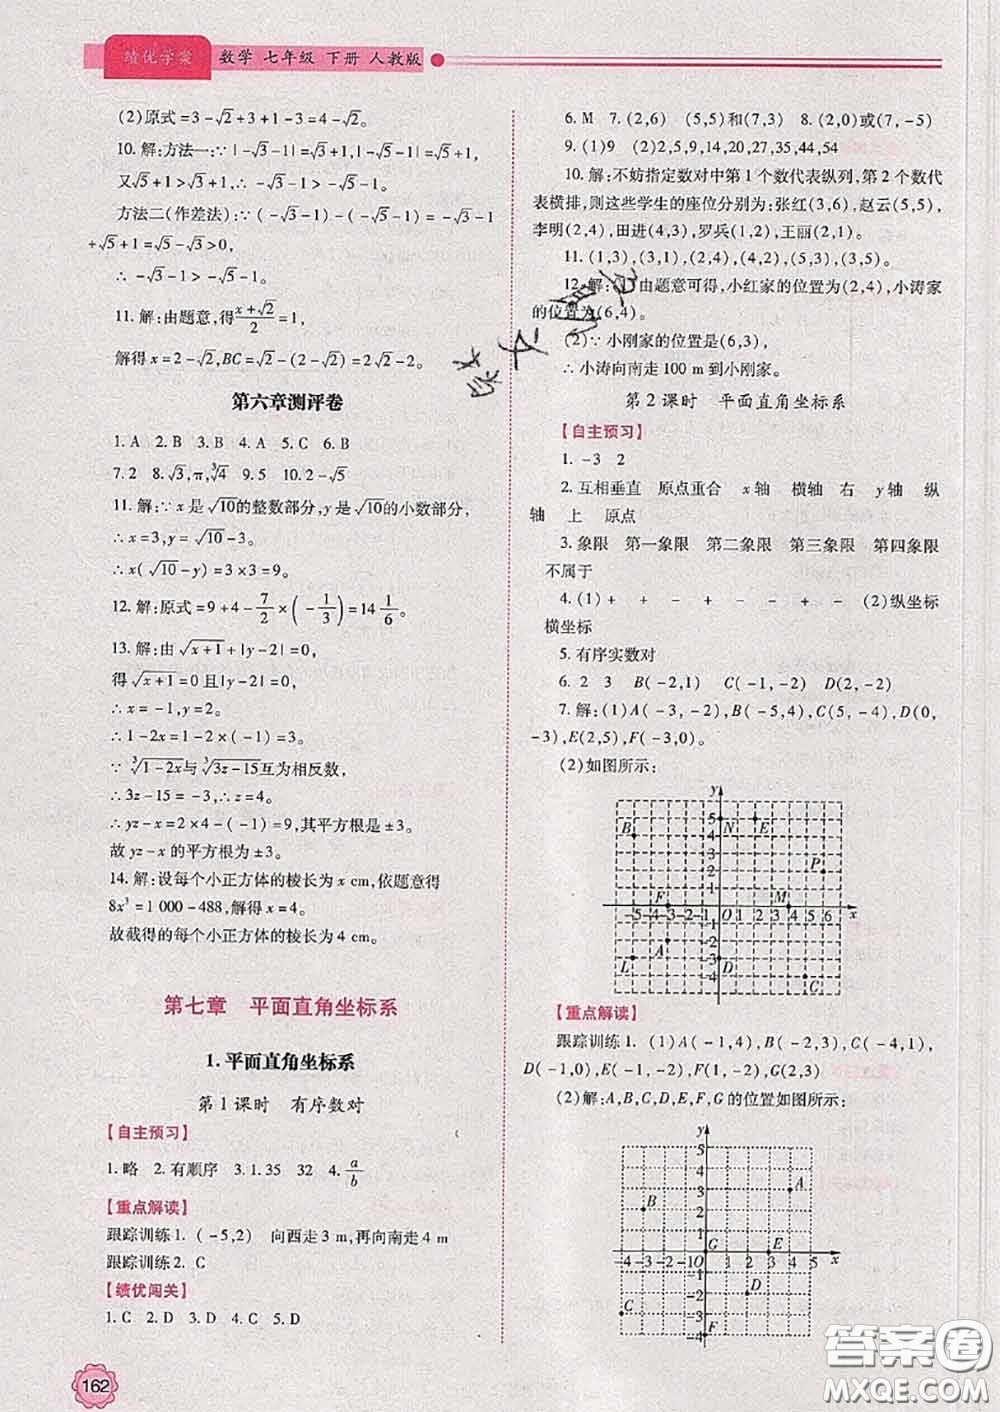 绩优学案 数学 七年级 下册 人教版
(2)原式=3-√2+3+1-3=4-√2。
10.解:方法一:∵|-√3-1|=√3+1,|-√5-1|=√5+1,
又√5+1>√3+1,∴-√3-1>-√5-1。
方法二(作差法):∵(-√3-1)-(-√5-1)=-√3-1
+√5+1=√5-√3>0,
∴-√3-1>-√5-1。
11.解:由题意,得(x+√2)/2=1,
解得x=2-√2,BC=√2-(2-√2)=2√2-2。
第六章测评卷
1.A 2.B 3.B 4.A 5.C 6.B
7.2 8.√3,π,∛4 9.5 10.2-√5
11.解:∵x是√10的整数部分,y是√10的小数部分,
∴x=3,y=√10-3。
∴x(√10-y)=3×3=9。
12.解:原式=9+4-7/2×(-1/3)=14 1/6。
13.解:由√(x+1)+|y-2|=0,
得√(x+1)=0且|y-2|=0。
∴x=-1,y=2。
∴1-2x=1-2×(-1)=3。
∵∛(1-2x)与∛(3z-15)互为相反数,
∴3z-15=-3,∴z=4。
∴yz-x=2×4-(-1)=9,其平方根是±3。
故yz-x的平方根为±3。
14.解:设每个小正方体的棱长为x cm,依题意得
8x³=1 000-488,解得x=4。
故截得的每个小正方体的棱长为4 cm。
第七章 平面直角坐标系
1.平面直角坐标系
第1课时 有序数对
【自主预习】
1.略 2.有顺序 3.1.35 32 4.a/b
【重点解读】
跟踪训练1.(-5,2) 向西走3 m,再向南走4 m
跟踪训练2.C
【绩优闯关】
1.C 2.D 3.D 4.C 5.D
162
6.M 7.(2,6) (5,5)和(7,3) 8.(2,0)或(7,-5)
9.(1)9 (2)2,5,9,14,20,27,35,44,54
10.解:不妨指定数对中第1个数代表纵列,第2个数代
表横排,则这些学生的座位分别为:张红(3,6),赵云(5,5),
李明(2,4),田进(4,3),罗兵(1,2),王丽(2,1)。
11.(1,3),(3,1),(2,4),(4,2),(5,3),(3,5)。
12.解:(1)由题意可得,小红家的位置为(2,4),小涛家
的位置为(6,4)。
(2)∵小刚家的位置是(6,3),
∴小涛向南走100 m到小刚家。
第2课时 平面直角坐标系
【自主预习】
1.-3 2
2.互相垂直 原点重合 x轴 横轴 右 y轴 纵
轴 上 原点
3.象限 第一象限 第二象限 第三象限 第四象限
不属于
4.(1)+ + - + - - + - (2)纵坐标
横坐标
5.有序实数对
6.2 3 B(-2,1) C(-1,-2) D(2,-2)
7.解:(1)A(-3,-2),B(-5,4),C(5,-4),D(0,
-3),E(2,5),F(-3,0)。
(2)如图所示:
y
5
B 4 N E
3
2 P
1
F M
-5-4-3-2-1 O 1 2 3 4 5 6 x
-1
A -2
L -3 D
-4 C
【重点解读】
跟踪训练1.(1)A(-1,4),B(-2,3),C(-4,1),
D(-1,0),E(-1,-2),F(1,-2),G(2,3)
(2)解:A,B,C,D,E,F,G的位置如图所示:
y
5
4
3 A
B 2
1
G E
-4 -3 -2 -1 O 1 2 3 4 5 x
-1
-2 D
C -3
-4 F
答案圈
MXQE.COM